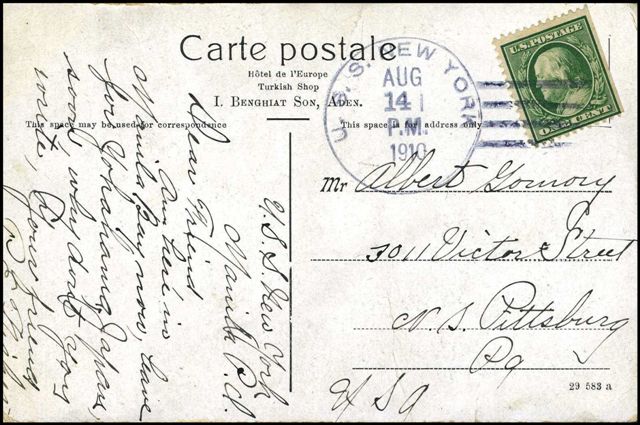 Carte postale
Hôtel de l'Europe
Turkish Shop
I. BENGHIAT SON, ADEN.
This space may be used for correspondence
This space is for address only
U.S.S. NEW YORK
AUG
14
P.M.
1910
U.S. POSTAGE
ONE CENT
U.S.S. New York
Manila P.I.
Dear Friend
Am here in
Manila Bay now, leave
for Yokohama, Japan,
soon, why don't you
write, Your friend
Mr Albert Gomory
3011 Victor Street
N. S. Pittsburg
Pa
U S A
29 583 a